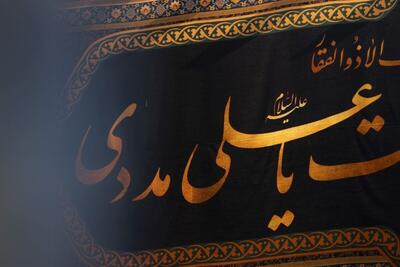 الا ذوالفقار
علیه السلام
یا علی مددی